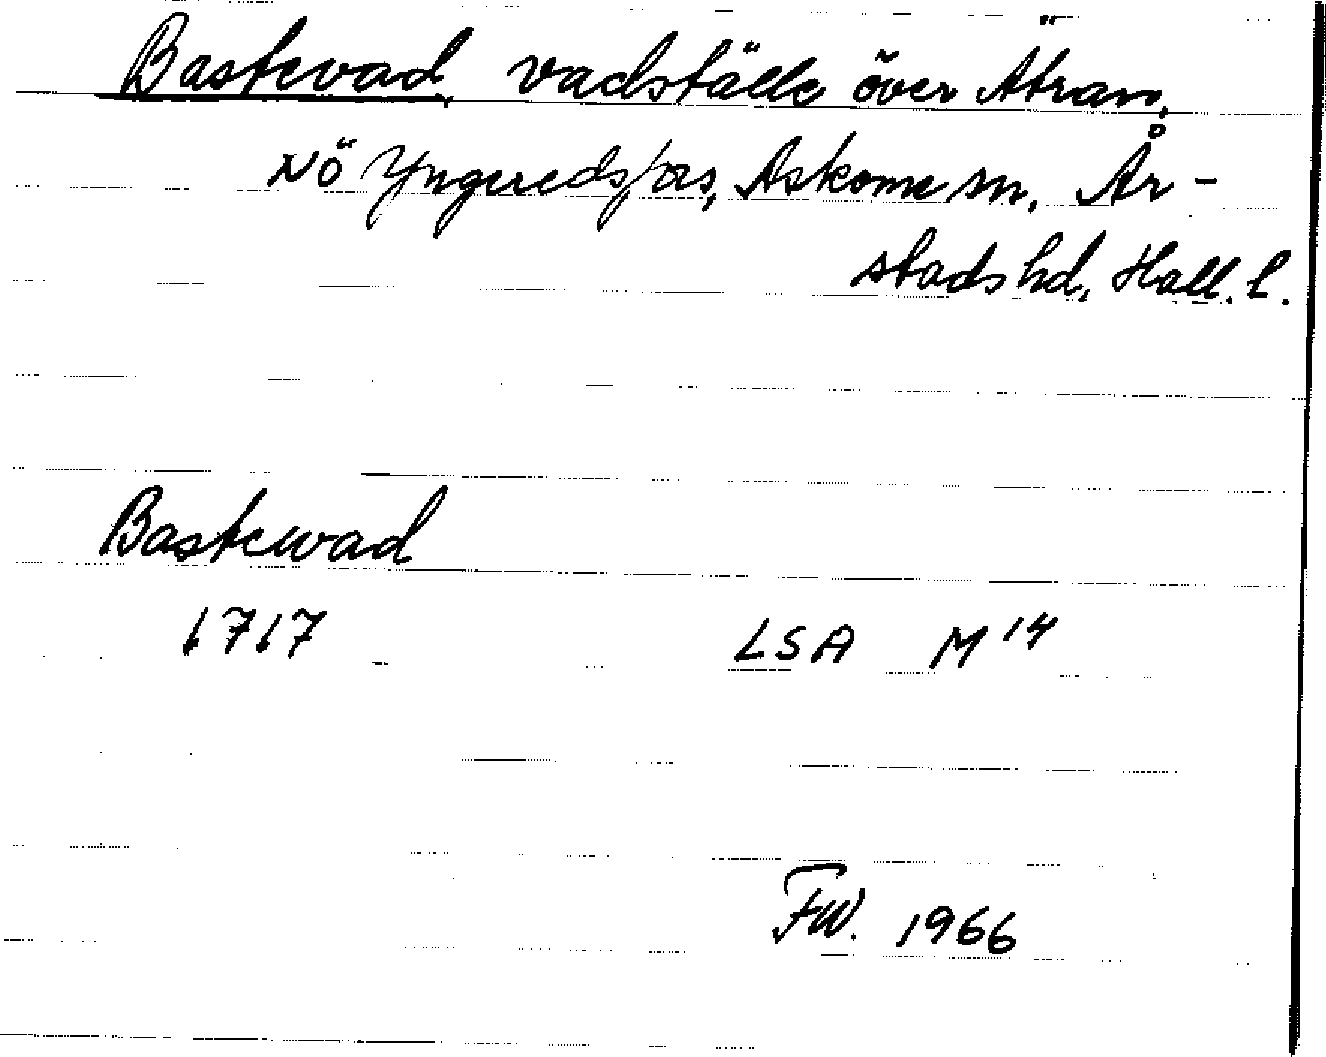 Bastevad, vadställe över Ätran,
NÖ Yngeredsfors, Askome sn, År-
stads hd, Hall. l.
Bastewad
1717 LSA M 14
FW. 1966